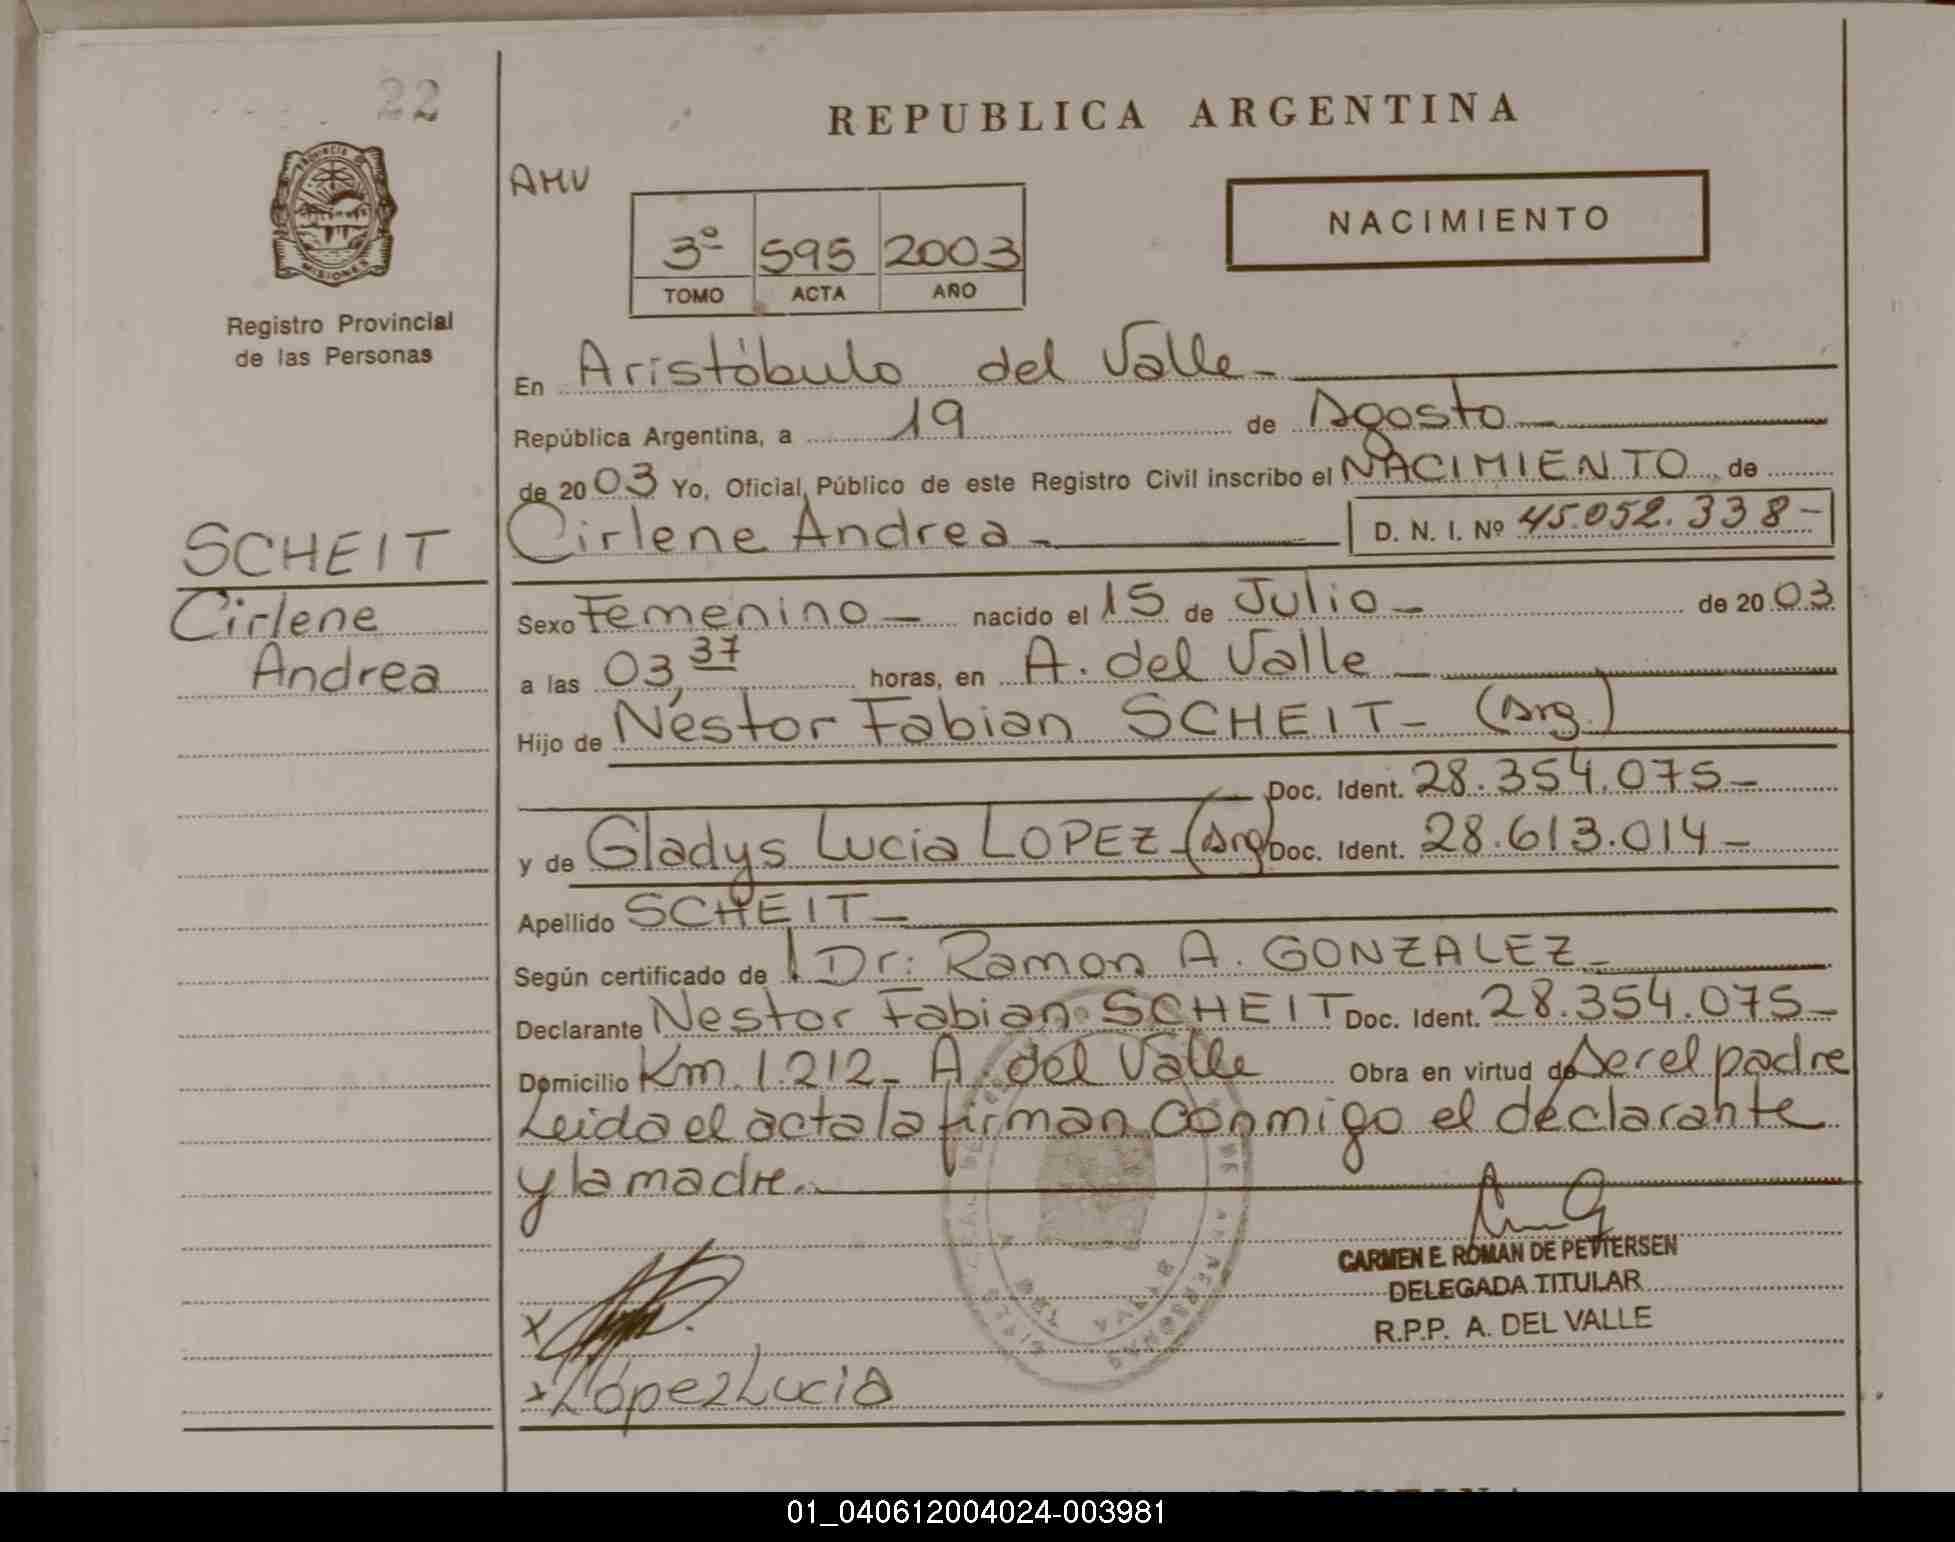 22
REPUBLICA ARGENTINA
PROVINCIA DE
MISIONES
Registro Provincial
de las Personas
AMV
3º 595 2003
TOMO ACTA AÑO
NACIMIENTO
En Aristóbulo del Valle-
República Argentina, a 19 de Agosto
de 2003 Yo, Oficial Público de este Registro Civil inscribo el NACIMIENTO de
Cirlene Andrea - D. N. I. Nº 45.052.338-
SCHEIT
Cirlene
Andrea
Sexo Femenino - nacido el 15 de Julio - de 2003
a las 03,37 horas, en A. del Valle
Hijo de Néstor Fabian SCHEIT- (Arg.)
Doc. Ident. 28.354.075-
y de Gladys Lucia LOPEZ-(Arg) Doc. Ident. 28.613.014-
Apellido SCHEIT-
Según certificado de Dr: Ramon A. GONZALEZ-
Declarante Nestor Fabian SCHEIT Doc. Ident. 28.354.075-
Domicilio Km. 1.212- A. del Valle Obra en virtud de Ser el padre
Leida el acta la firman conmigo el declarante
y la madre.-
CARMEN E. ROMAN DE PETTERSEN
DELEGADA TITULAR
R.P.P. A. DEL VALLE
x
x López Lucia
01_040612004024-003981